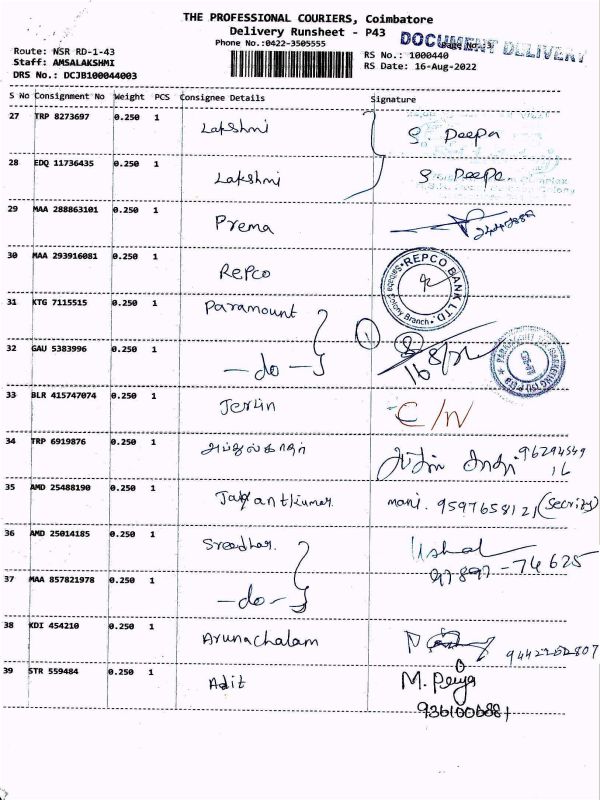 THE PROFESSIONAL COURIERS, Coimbatore
Delivery Runsheet - P43
Phone No.:0422-3505555
DOCUMENT DELIVERY
Route: NSR RD-1-43
RS No.: 1000440
Staff: AMSALAKSHMI
RS Date: 16-Aug-2022
DRS No.: DCJB100044003
S No Consignment No Weight PCS Consignee Details Signature
27 TRP 8273697 0.250 1 Lakshmi S. Deepa
28 EDQ 11736435 0.250 1 Lakshmi S Deepa
29 MAA 288863101 0.250 1 Prema
30 MAA 293916081 0.250 1 Repco
REPCO BANK LTD. Saibaba Colony Branch
31 KTG 7115515 0.250 1 Paramount 1
32 GAU 5383996 0.250 1 -do- 16/8/22
33 BLR 415747074 0.250 1 Jerlin C/N
34 TRP 6919876 0.250 1 அப்துல்காதர் 96294549
16
35 AMD 25488190 0.250 1 Jayantkumar. mani. 9597658121 (Secrity)
36 AMD 25014185 0.250 1 Sreedhar. Ushal
97897-74625
37 MAA 857821978 0.250 1 -do-
38 KDI 454210 0.250 1 Arunachalam 9442252807
39 STR 559484 0.250 1 Adit M. Peiya
9361006881